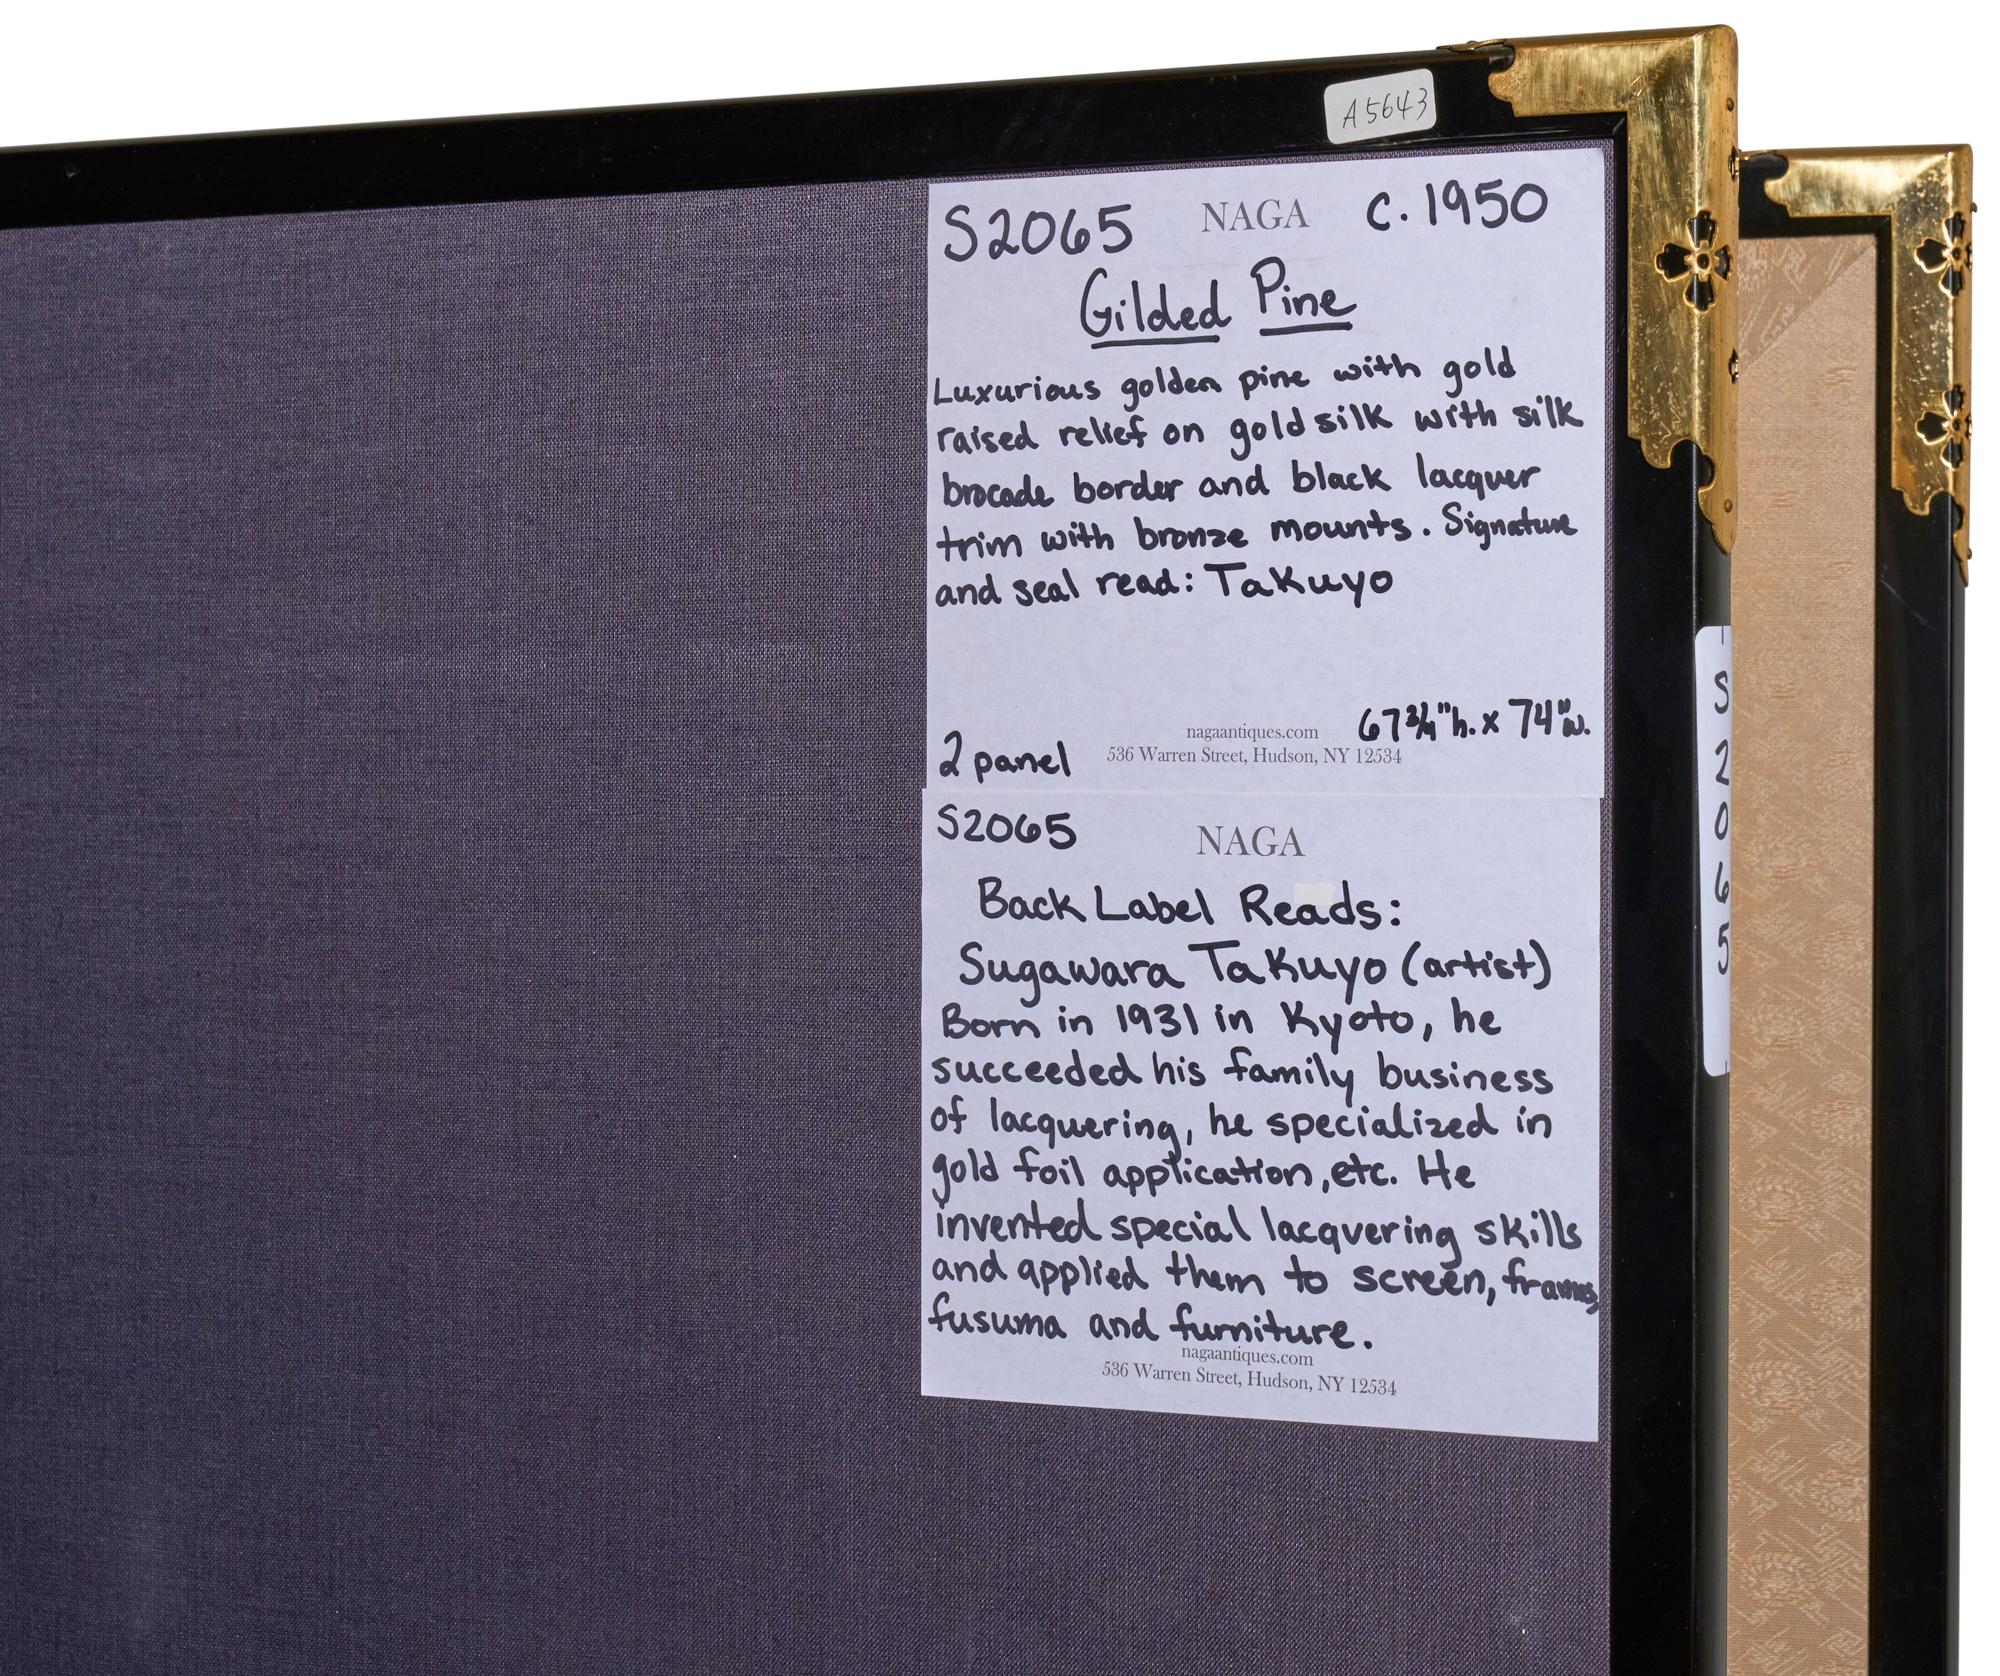 A5643
S2065 NAGA c. 1950
Gilded Pine
Luxurious golden pine with gold
raised relief on gold silk with silk
brocade border and black lacquer
trim with bronze mounts. Signature
and seal read: Takuyo
2 panel
67 3/4"h. x 74"w.
nagaantiques.com
536 Warren Street, Hudson, NY 12534
S2065 NAGA
Back Label Reads:
Sugawara Takuyo (artist)
Born in 1931 in Kyoto, he
succeeded his family business
of lacquering, he specialized in
gold foil application, etc. He
invented special lacquering skills
and applied them to screen, frames,
fusuma and furniture.
nagaantiques.com
536 Warren Street, Hudson, NY 12534
S2065